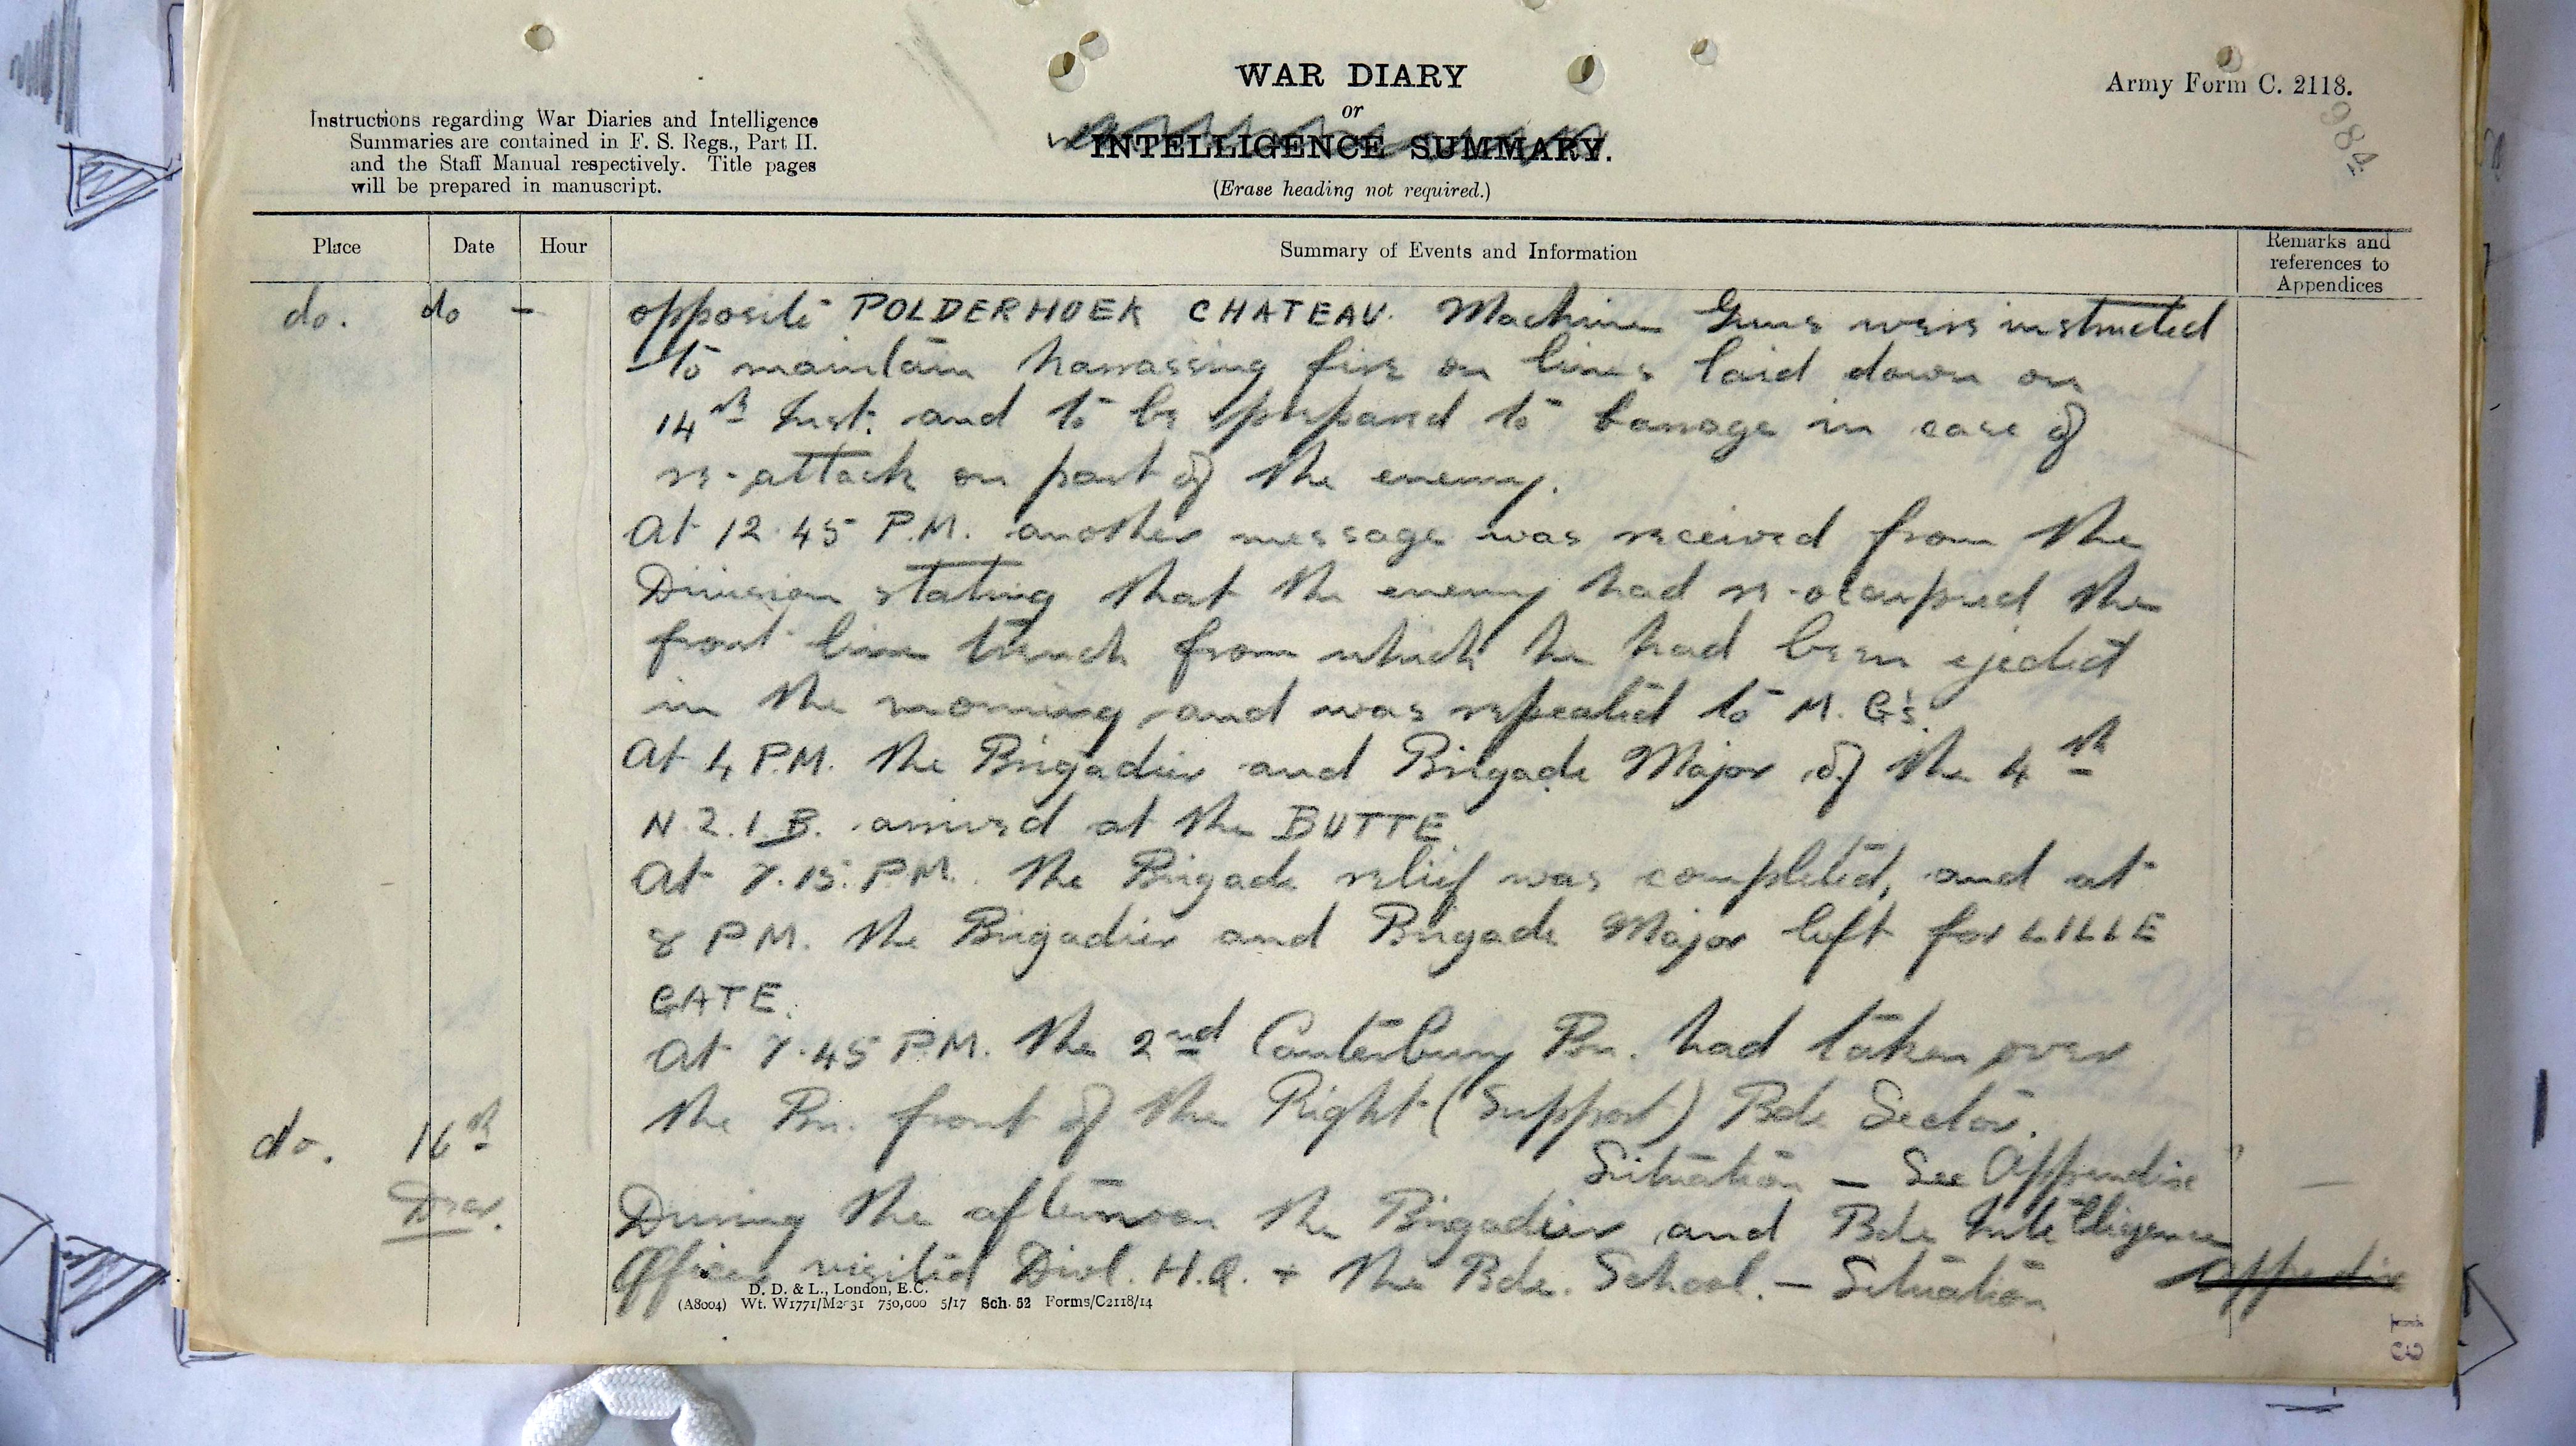 WAR DIARY
or
INTELLIGENCE SUMMARY.
(Erase heading not required.)
Army Form C. 2118.
984
Instructions regarding War Diaries and Intelligence
Summaries are contained in F. S. Regs., Part II.
and the Staff Manual respectively. Title pages
will be prepared in manuscript.
Place Date Hour Summary of Events and Information Remarks and references to Appendices
do. do - opposite POLDERHOEK CHATEAU. Machine Guns were instructed
to maintain harrassing fire on lines laid down on
14th Inst. and to be prepared to barrage in case of
re-attack on part of the enemy.
At 12.45 P.M. another message was received from the
Division stating that the enemy had re-occupied the
front line trench from which he had been ejected
in the morning and was repeated to M. G's.
At 4 P.M. the Brigadier and Brigade Major of the 4th
N.Z.I.B. arrived at the BUTTE
At 7.15. P.M. the Brigade relief was completed, and at
8 P.M. the Brigadier and Brigade Major left for LILLE
GATE.
At 7.45 P.M. the 2nd Canterbury Bn. had taken over
the Bn. front of the Right (Support) Bde Sector.
Situation — See Appendix —
do. 16th Decr. During the afternoon the Brigadier and Bde Intelligence
Officer visited Divl. H.Q. + the Bde. School. — Situation Appendix
D. D. & L., London, E.C.
(A8004) Wt. W1771/M2031 750,000 5/17 Sch. 52 Forms/C2118/14
13